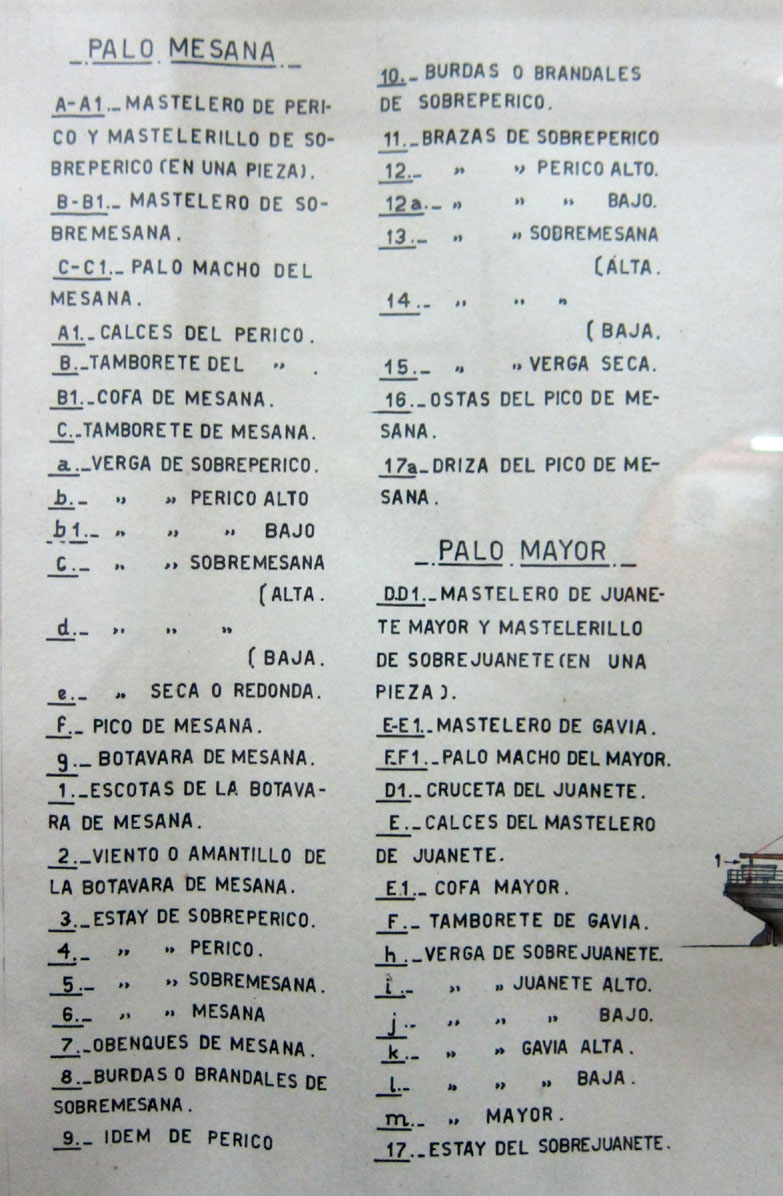 PALO MESANA
A-A1.- MASTELERO DE PERI-
CO Y MASTELERILLO DE SO-
BREPERICO (EN UNA PIEZA).
B-B1.- MASTELERO DE SO-
BREMESANA.
C-C1.- PALO MACHO DEL
MESANA.
A1.- CALCES DEL PERICO.
B.- TAMBORETE DEL " .
B1.- COFA DE MESANA.
C.- TAMBORETE DE MESANA.
a.- VERGA DE SOBREPERICO.
b.- " " PERICO ALTO
b1.- " " " BAJO
c.- " " SOBREMESANA
(ALTA.
d.- " " "
(BAJA.
e.- " SECA O REDONDA.
f.- PICO DE MESANA.
g.- BOTAVARA DE MESANA.
1.- ESCOTAS DE LA BOTAVA-
RA DE MESANA.
2.- VIENTO O AMANTILLO DE
LA BOTAVARA DE MESANA.
3.- ESTAY DE SOBREPERICO.
4.- " " PERICO.
5.- " " SOBREMESANA.
6.- " " MESANA
7.- OBENQUES DE MESANA.
8.- BURDAS O BRANDALES DE
SOBREMESANA.
9.- IDEM DE PERICO
10.- BURDAS O BRANDALES
DE SOBREPERICO.
11.- BRAZAS DE SOBREPERICO
12.- " " PERICO ALTO.
12a.- " " " BAJO.
13.- " " SOBREMESANA
(ALTA.
14.- " " "
(BAJA.
15.- " " VERGA SECA.
16.- OSTAS DEL PICO DE ME-
SANA.
17a- DRIZA DEL PICO DE ME-
SANA.
PALO MAYOR
D.D1.- MASTELERO DE JUANE-
TE MAYOR Y MASTELERILLO
DE SOBREJUANETE (EN UNA
PIEZA).
E-E1.- MASTELERO DE GAVIA.
F.F1.- PALO MACHO DEL MAYOR.
D1.- CRUCETA DEL JUANETE.
E.- CALCES DEL MASTELERO
DE JUANETE.
E1.- COFA MAYOR.
F.- TAMBORETE DE GAVIA.
h.- VERGA DE SOBREJUANETE.
i.- " " JUANETE ALTO.
j.- " " " BAJO.
k.- " " GAVIA ALTA.
l.- " " " BAJA.
m.- " MAYOR.
17.- ESTAY DEL SOBREJUANETE.
1